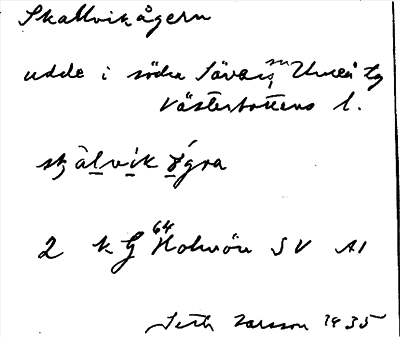 Skallvikågern
udde i södra Sävar sn Umeå tg
Västerbottens l.
självik
2 k G 64 Holmön SV A1
Seth Larsson 1935